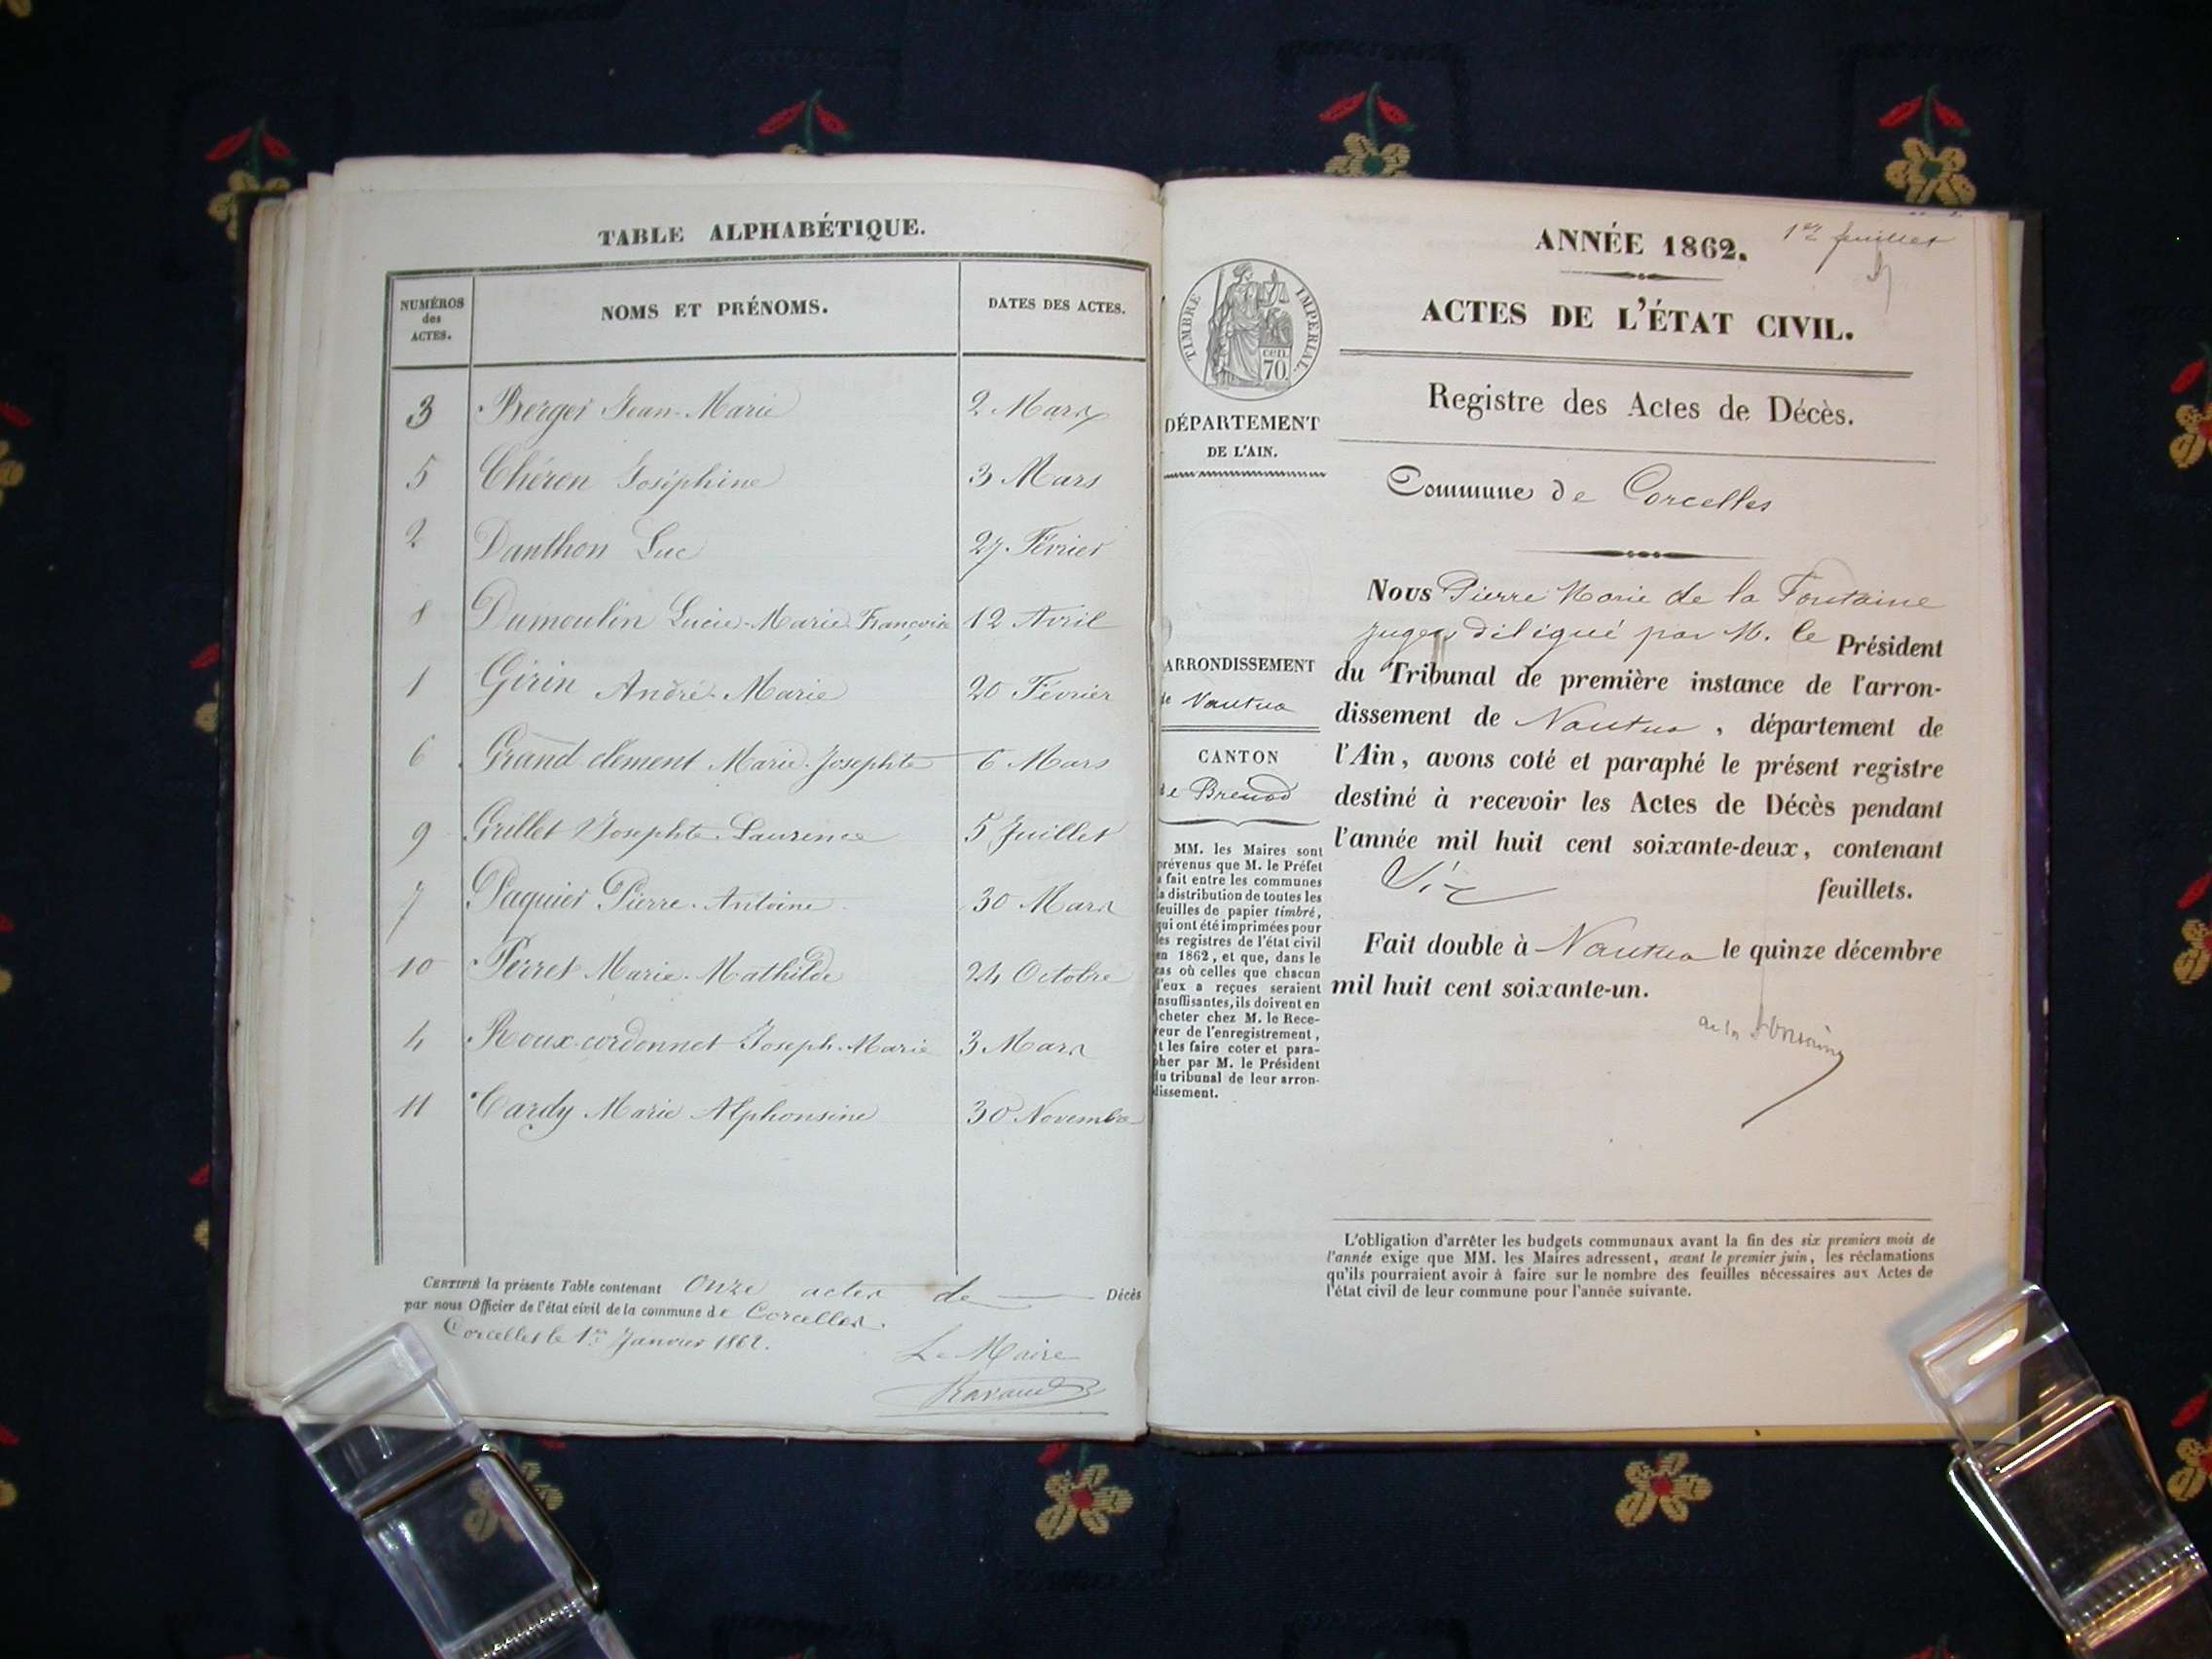 TABLE ALPHABÉTIQUE.
NUMÉROS
des
ACTES.
NOMS ET PRÉNOMS.
DATES DES ACTES.
3 Berger Jean-Marie 2 Mars
5 Chéron Joséphine 3 Mars
2 Danthon Luc 27 Février
8 Dumoulin Lucie-Marie Françoise 12 Avril
1 Girin André-Marie 20 Février
6 Grand clément Marie Josephte 6 Mars
9 Grillet Josephte Laurence 5 Juillet
7 Paquier Pierre-Antoine 30 Mars
10 Perret Marie-Mathilde 24 Octobre
4 Roux-cordonnet Joseph-Marie 3 Mars
11 Cardy Marie Alphonsine 30 Novembre
CERTIFIÉ la présente Table contenant Onze actes de Décès
par nous Officier de l'état civil de la commune de Corcelles.
Corcelles le 1er Janvier 1862.
Le Maire
Ravaud
ANNÉE 1862.
1er feuillet
ACTES DE L'ÉTAT CIVIL.
TIMBRE IMPÉRIAL.
cen.
70
Registre des Actes de Décès.
DÉPARTEMENT
DE L'AIN.
Commune de Corcelles
Nous Pierre Marie de la Fontaine
juge délégué par M. le Président
du Tribunal de première instance de l'arron-
dissement de Nantua, département de
l'Ain, avons coté et paraphé le présent registre
destiné à recevoir les Actes de Décès pendant
l'année mil huit cent soixante-deux, contenant
Six feuillets.
Fait double à Nantua le quinze décembre
mil huit cent soixante-un.
de la Fontaine
ARRONDISSEMENT
de Nantua
CANTON
de Brenod
MM. les Maires sont
prévenus que M. le Préfet
a fait entre les communes
la distribution de toutes les
feuilles de papier timbré,
qui ont été imprimées pour
les registres de l'état civil
en 1862, et que, dans le
cas où celles que chacun
d'eux a reçues seraient
insuffisantes, ils doivent en
acheter chez M. le Rece-
veur de l'enregistrement,
et les faire coter et para-
pher par M. le Président
du tribunal de leur arron-
dissement.
L'obligation d'arrêter les budgets communaux avant la fin des six premiers mois de
l'année exige que MM. les Maires adressent, avant le premier juin, les réclamations
qu'ils pourraient avoir à faire sur le nombre des feuilles nécessaires aux Actes de
l'état civil de leur commune pour l'année suivante.